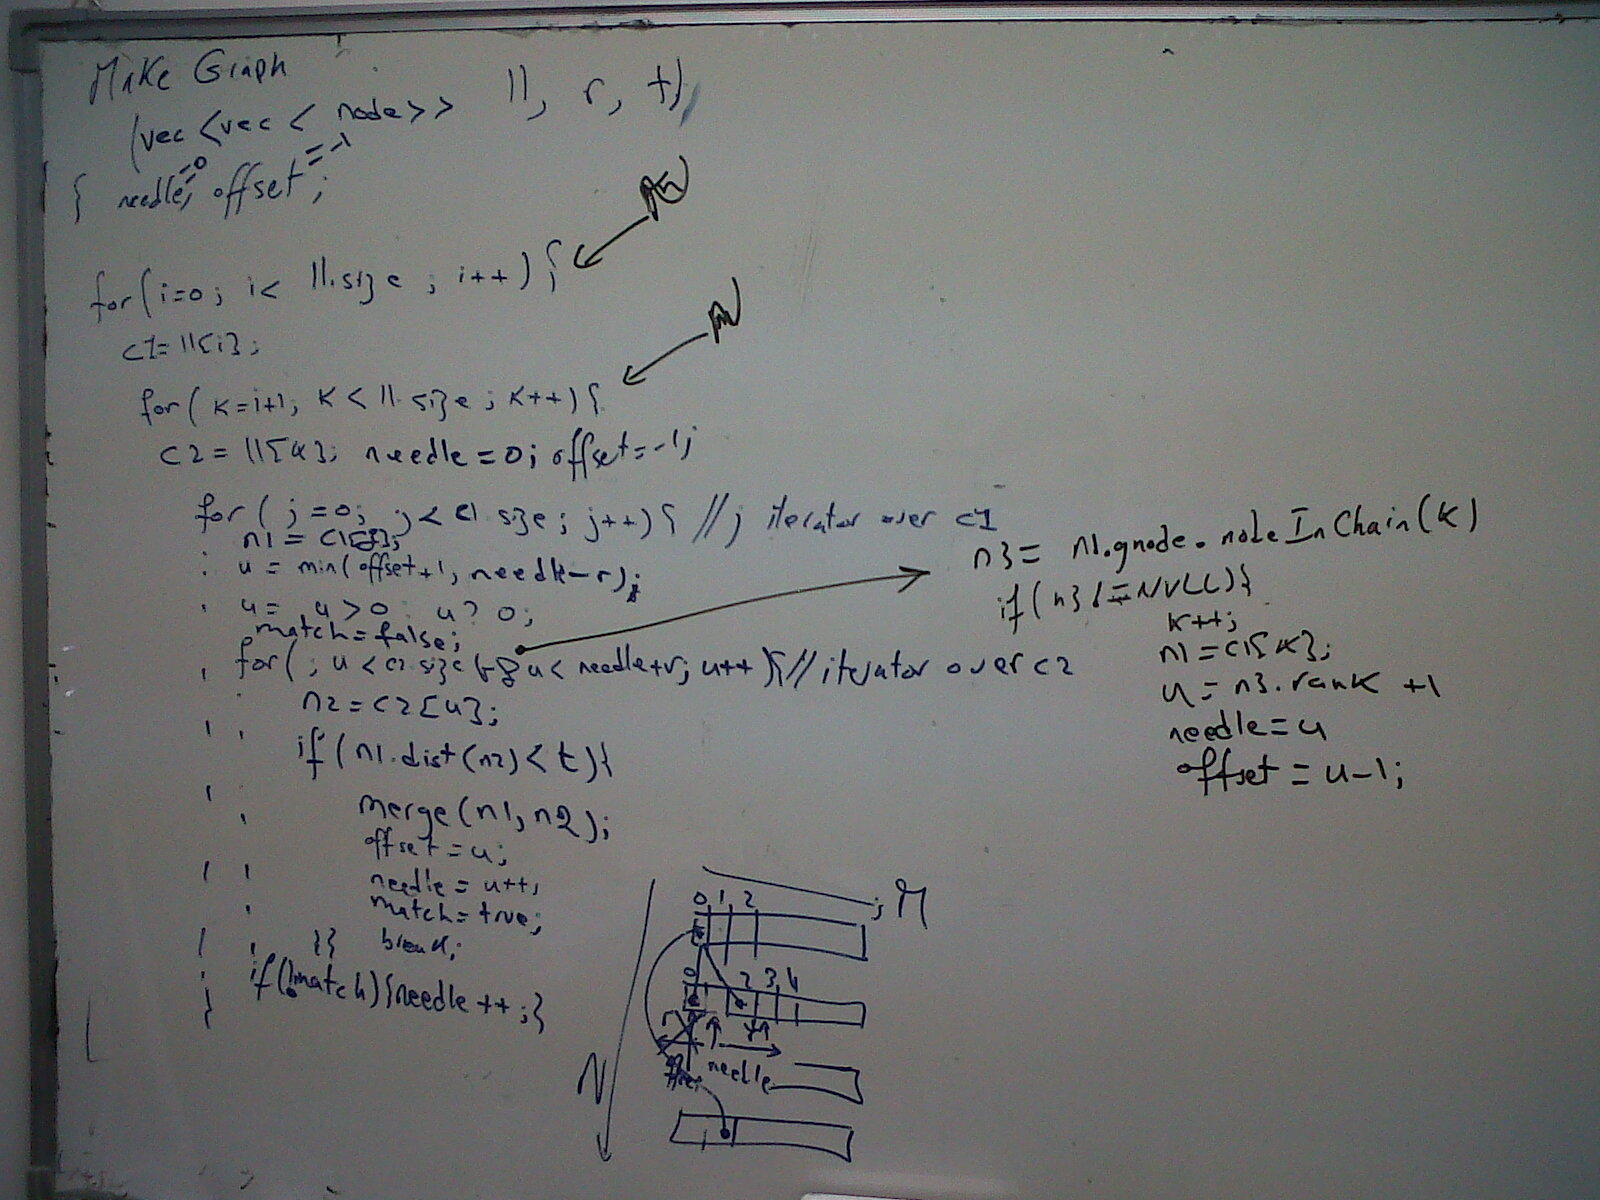 Make Graph
(vec <vec < node>> ll, r, t)
{ needle=0, offset=-1;
for(i=0; i< ll.size; i++) {
c1= ll[i];
for( k=i+1; k< ll.size; k++) {
c2= ll[k]; needle=0; offset=-1;
for( j=0; j< c1.size; j++) { //j iterator over c1
n1 = c1[j];
u = min(offset+1, needle-r);
u= u>0: u? 0;
match=false;
for( ; u<c2.size && u< needle+r; u++ ){ //iterator over c2
n2=c2[u];
if(n1.dist(n2)<t){
merge(n1,n2);
offset=u;
needle=u++;
match=true;
}} break;
if(!match){needle++;}
}
n3= n1.gnode.nodeInChain(k)
if(n3!=NULL){
k++;
n1=c1[k];
u=n3.rank+1
needle=u
offset=u-1;
0 1 2
; M
0 2 3 4
r
needle
N